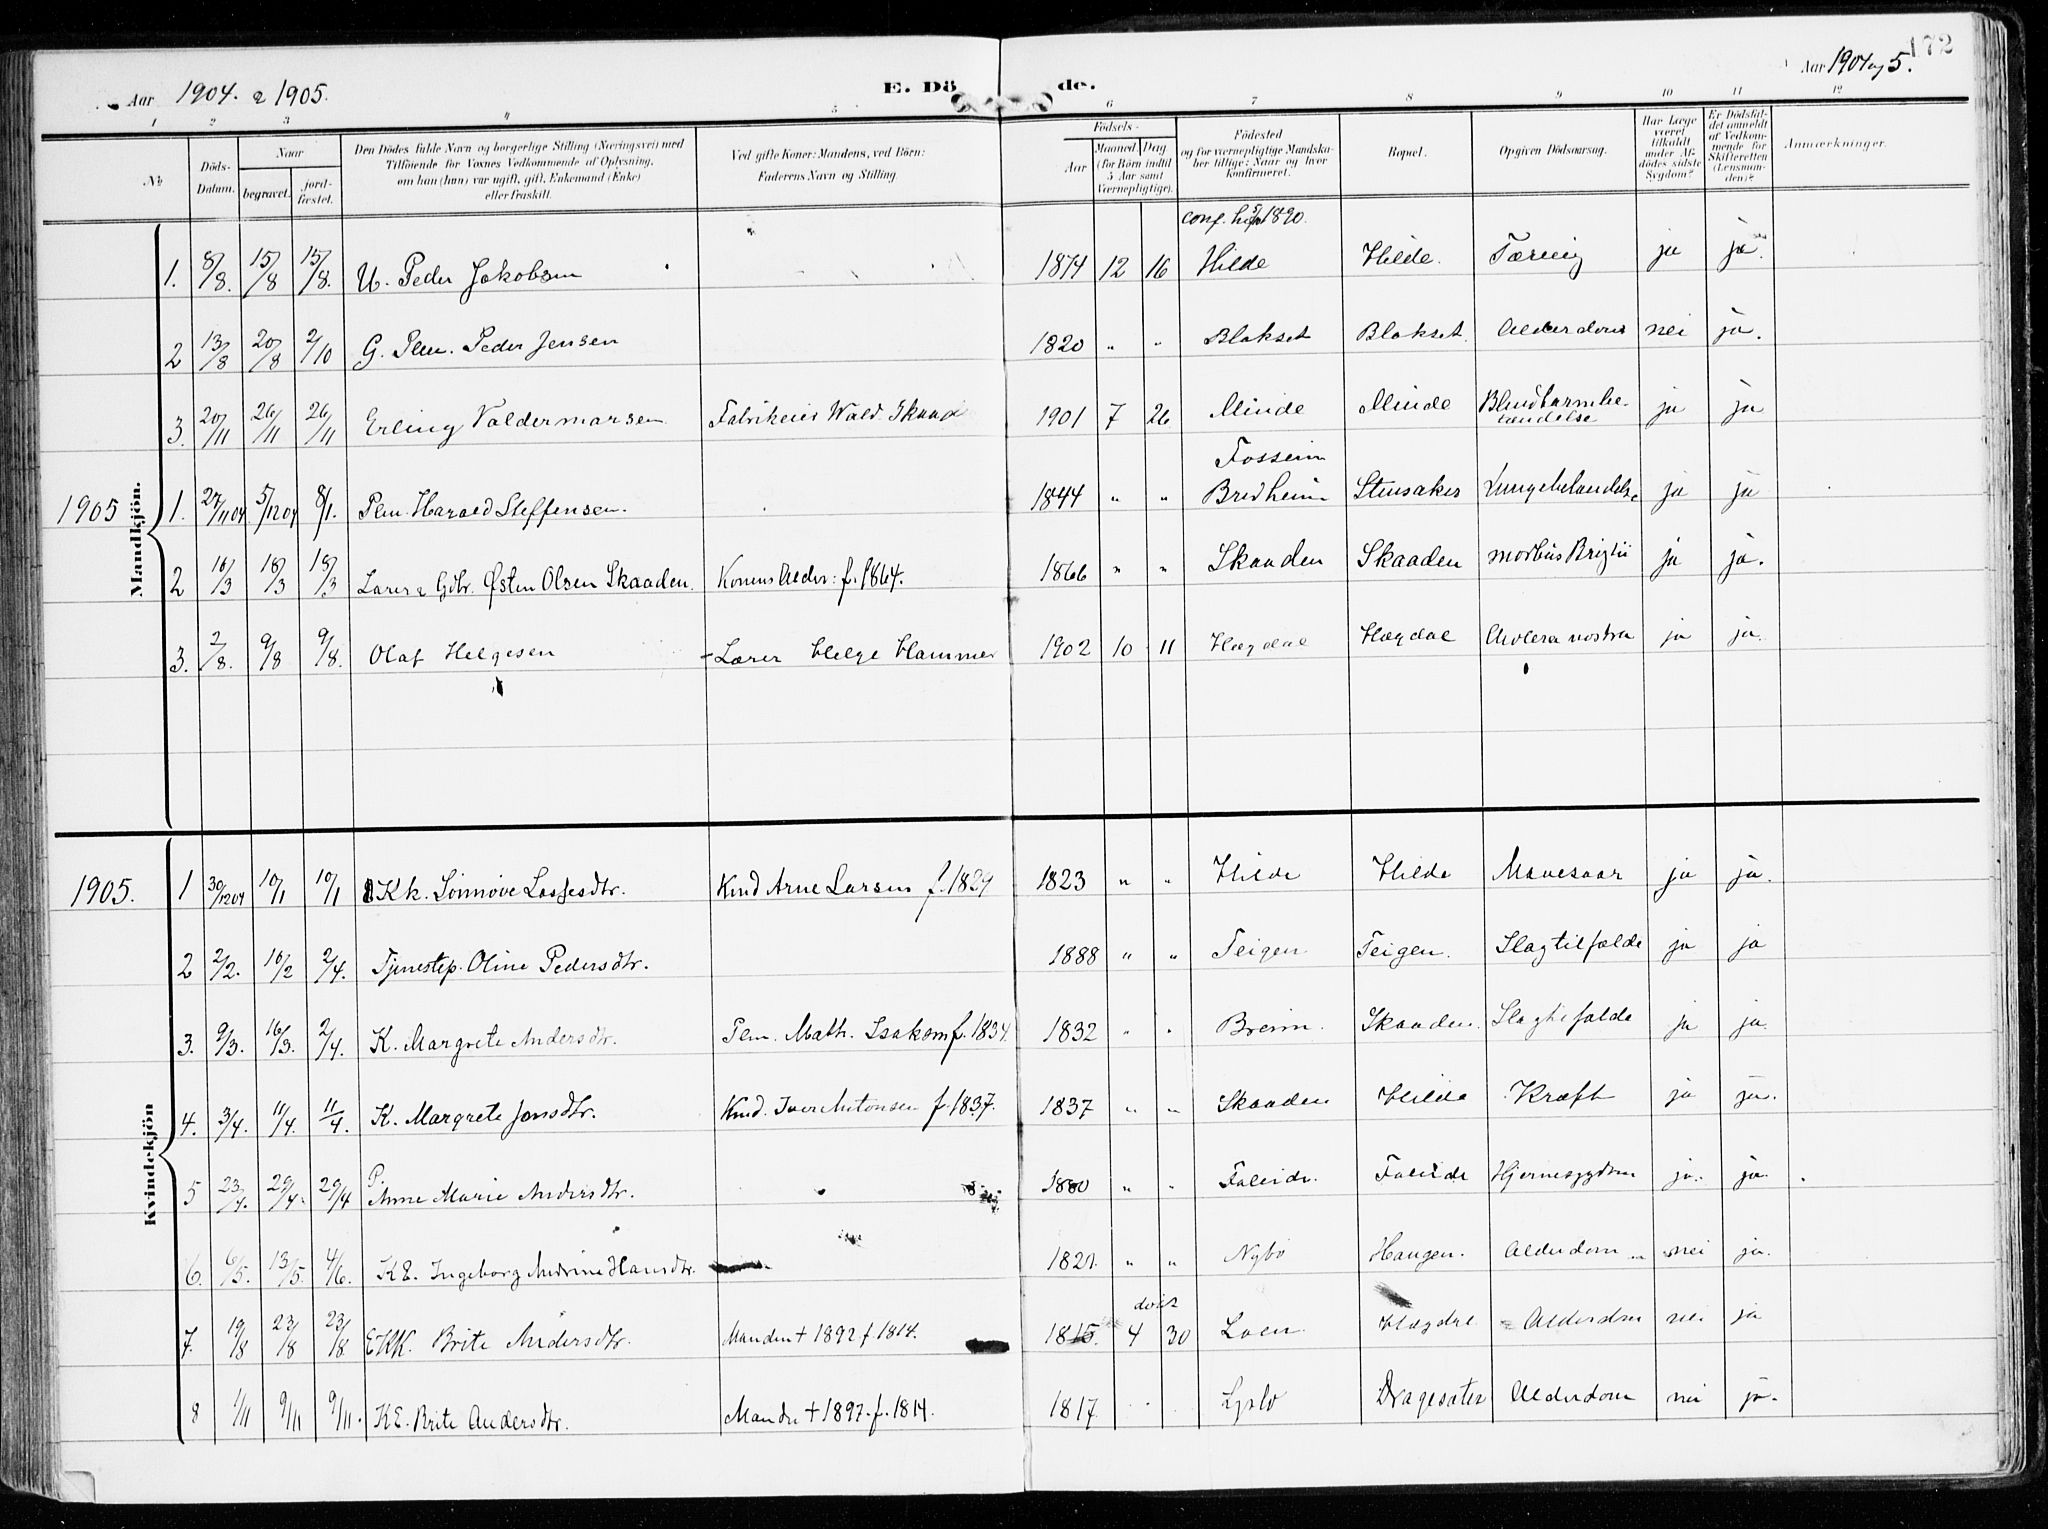 Aar 1904. & 1905.
E. Dö de.
Aar 1904 og 5.
172
1 2 3 4 5 6 7 8 9 10 11 12
No
Döds-Datum.
Naar
begravet.
jord-fæstet.
Den Dödes fulde Navn og borgerlige Stilling (Næringsvei) med
Tilföiende for Voxnes Vedkommende af Oplysning,
om han (hun) var ugift, gift, Enkemand (Enke)
eller fraskilt.
Ved gifte Koner: Mandens, ved Börn:
Faderens Navn og Stilling.
Födsels-
Aar
Maaned Dag
(for Börn indtil
5 Aar samt
Værnepligtige).
Födested
og for værnepligtige Mandska-
ber tillige: Naar og hvor
konfirmeret.
Bopæl.
Opgiven Dödsaarsag.
Har Læge
været
tilkaldt
under Af-
dödes sidste
Sygdom?
Er Dödsfal-
det anmeldt
af Vedkom-
mende for
Skifteretten
(Lensman-
den)?
Anmærkninger.
Mandkjön.
conf. 1890.
1. 8/8. 15/8 15/8. U. Peder Jakobsen 1874 12 16 Hilde Hilde. Tæring ja ja.
2 13/8 20/8 2/10 G. Pem. Peder Jensen 1820 " " Blakset Blakset. Alderdom nei ja.
3. 20/11 26/11 26/11 Erling Valdermarsen Fabrikeier Wald. Skaad 1901 7 26 Minde Minde Blindtarmbe-
tændelse ja ja
Fosseim
1905 1. 27/11 04 5/12 04 8/1. Pem. Harald Steffensen. 1844 " " Bredheim Stensaker Lungebetændelse ja ja
2 16/3 18/3 18/3 Lærer & Gbr. Østen Olsen Skaaden. Konens Alder: f. 1864. 1866 " " Skaaden Skaaden morbus Brigtii ja ja.
3. 2/8. 9/8 9/8. Olaf Helgesen - Lærer Helge Hammer 1902 10 11 Hægdal Hægdal Cholera nostra ja ja.
Kvindekjön
1905. 1 30/12 04 10/1 10/1 Kk. Sønnøve Lassesdtr. Kmd Arne Larsen f. 1829 1823 " " Hilde Hilde Mavesaar ja ja.
2 2/2. 16/2 2/4. Tjenestep. Oline Pedersdtr. 1888 " " Teigen Teigen. Slagtilfælde ja ja
3. 9/3. 16/3. 2/4. K. Margrete Andersdtr. Pem. Math. Isaksen f. 1834. 1832 " " Breim. Skaaden. Slagtilfælde ja ja.
4. 3/4. 11/4. 11/4. K. Margrete Jonsdtr. Kmd. Iver Antonsen f. 1837. 1837 " " Skaaden Hilde Kræft ja ja.
5 23/4. 29/4. 29/4 P. Anne Marie Andersdtr. 1880 " " Faleide. Faleide Hjernesygdom ja. ja.
6. 6/5. 13/5. 4/6. KE. Ingeborg Andrine Hansdtr. 1820. " " Nybø Haugen. Alderdom nei ja.
døbt
7. 19/8 23/8 23/8. EKK. Brite Andersdtr. Manden + 1892 f. 1814. 1815. 4 30 Loen Hægdal Alderdom nei ja
8 1/11 9/11 9/11. KE. Brite Andersdtr. Manden + 1897. f. 1814. 1817 Lyslo Dragesæter Alderdom nei ja.